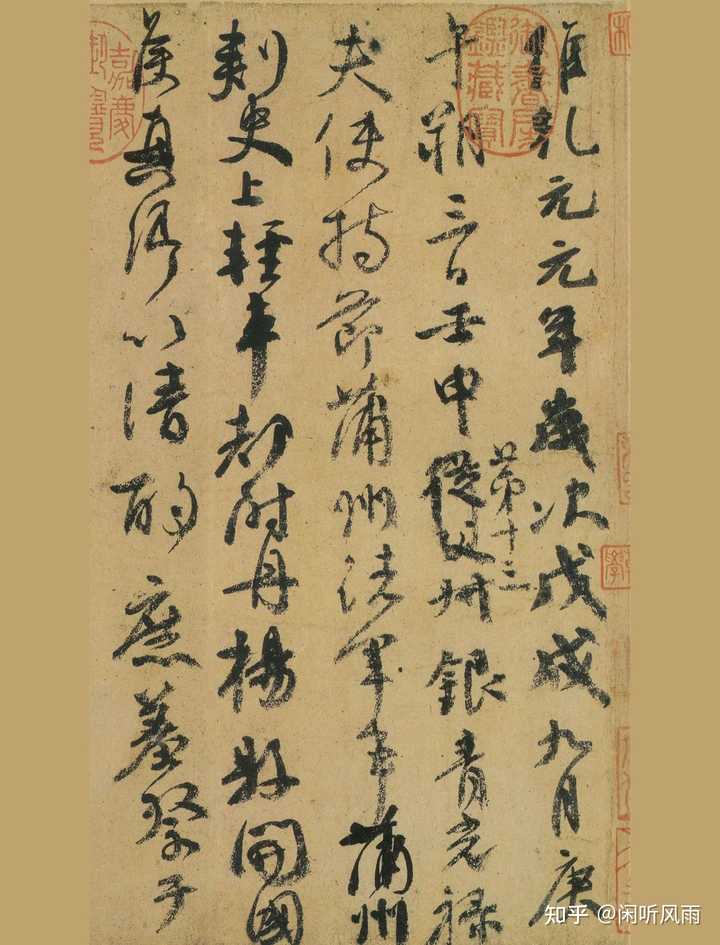 維乾元元年歲次戊戌九月庚
午朔三日壬申第十三從父叔銀青光祿
夫使持節蒲州諸軍事蒲州
刺史上輕車都尉丹楊縣開國
侯真卿以清酌庶羞祭于
御書房鑑藏寶
嘉慶
知乎 @闲听风雨